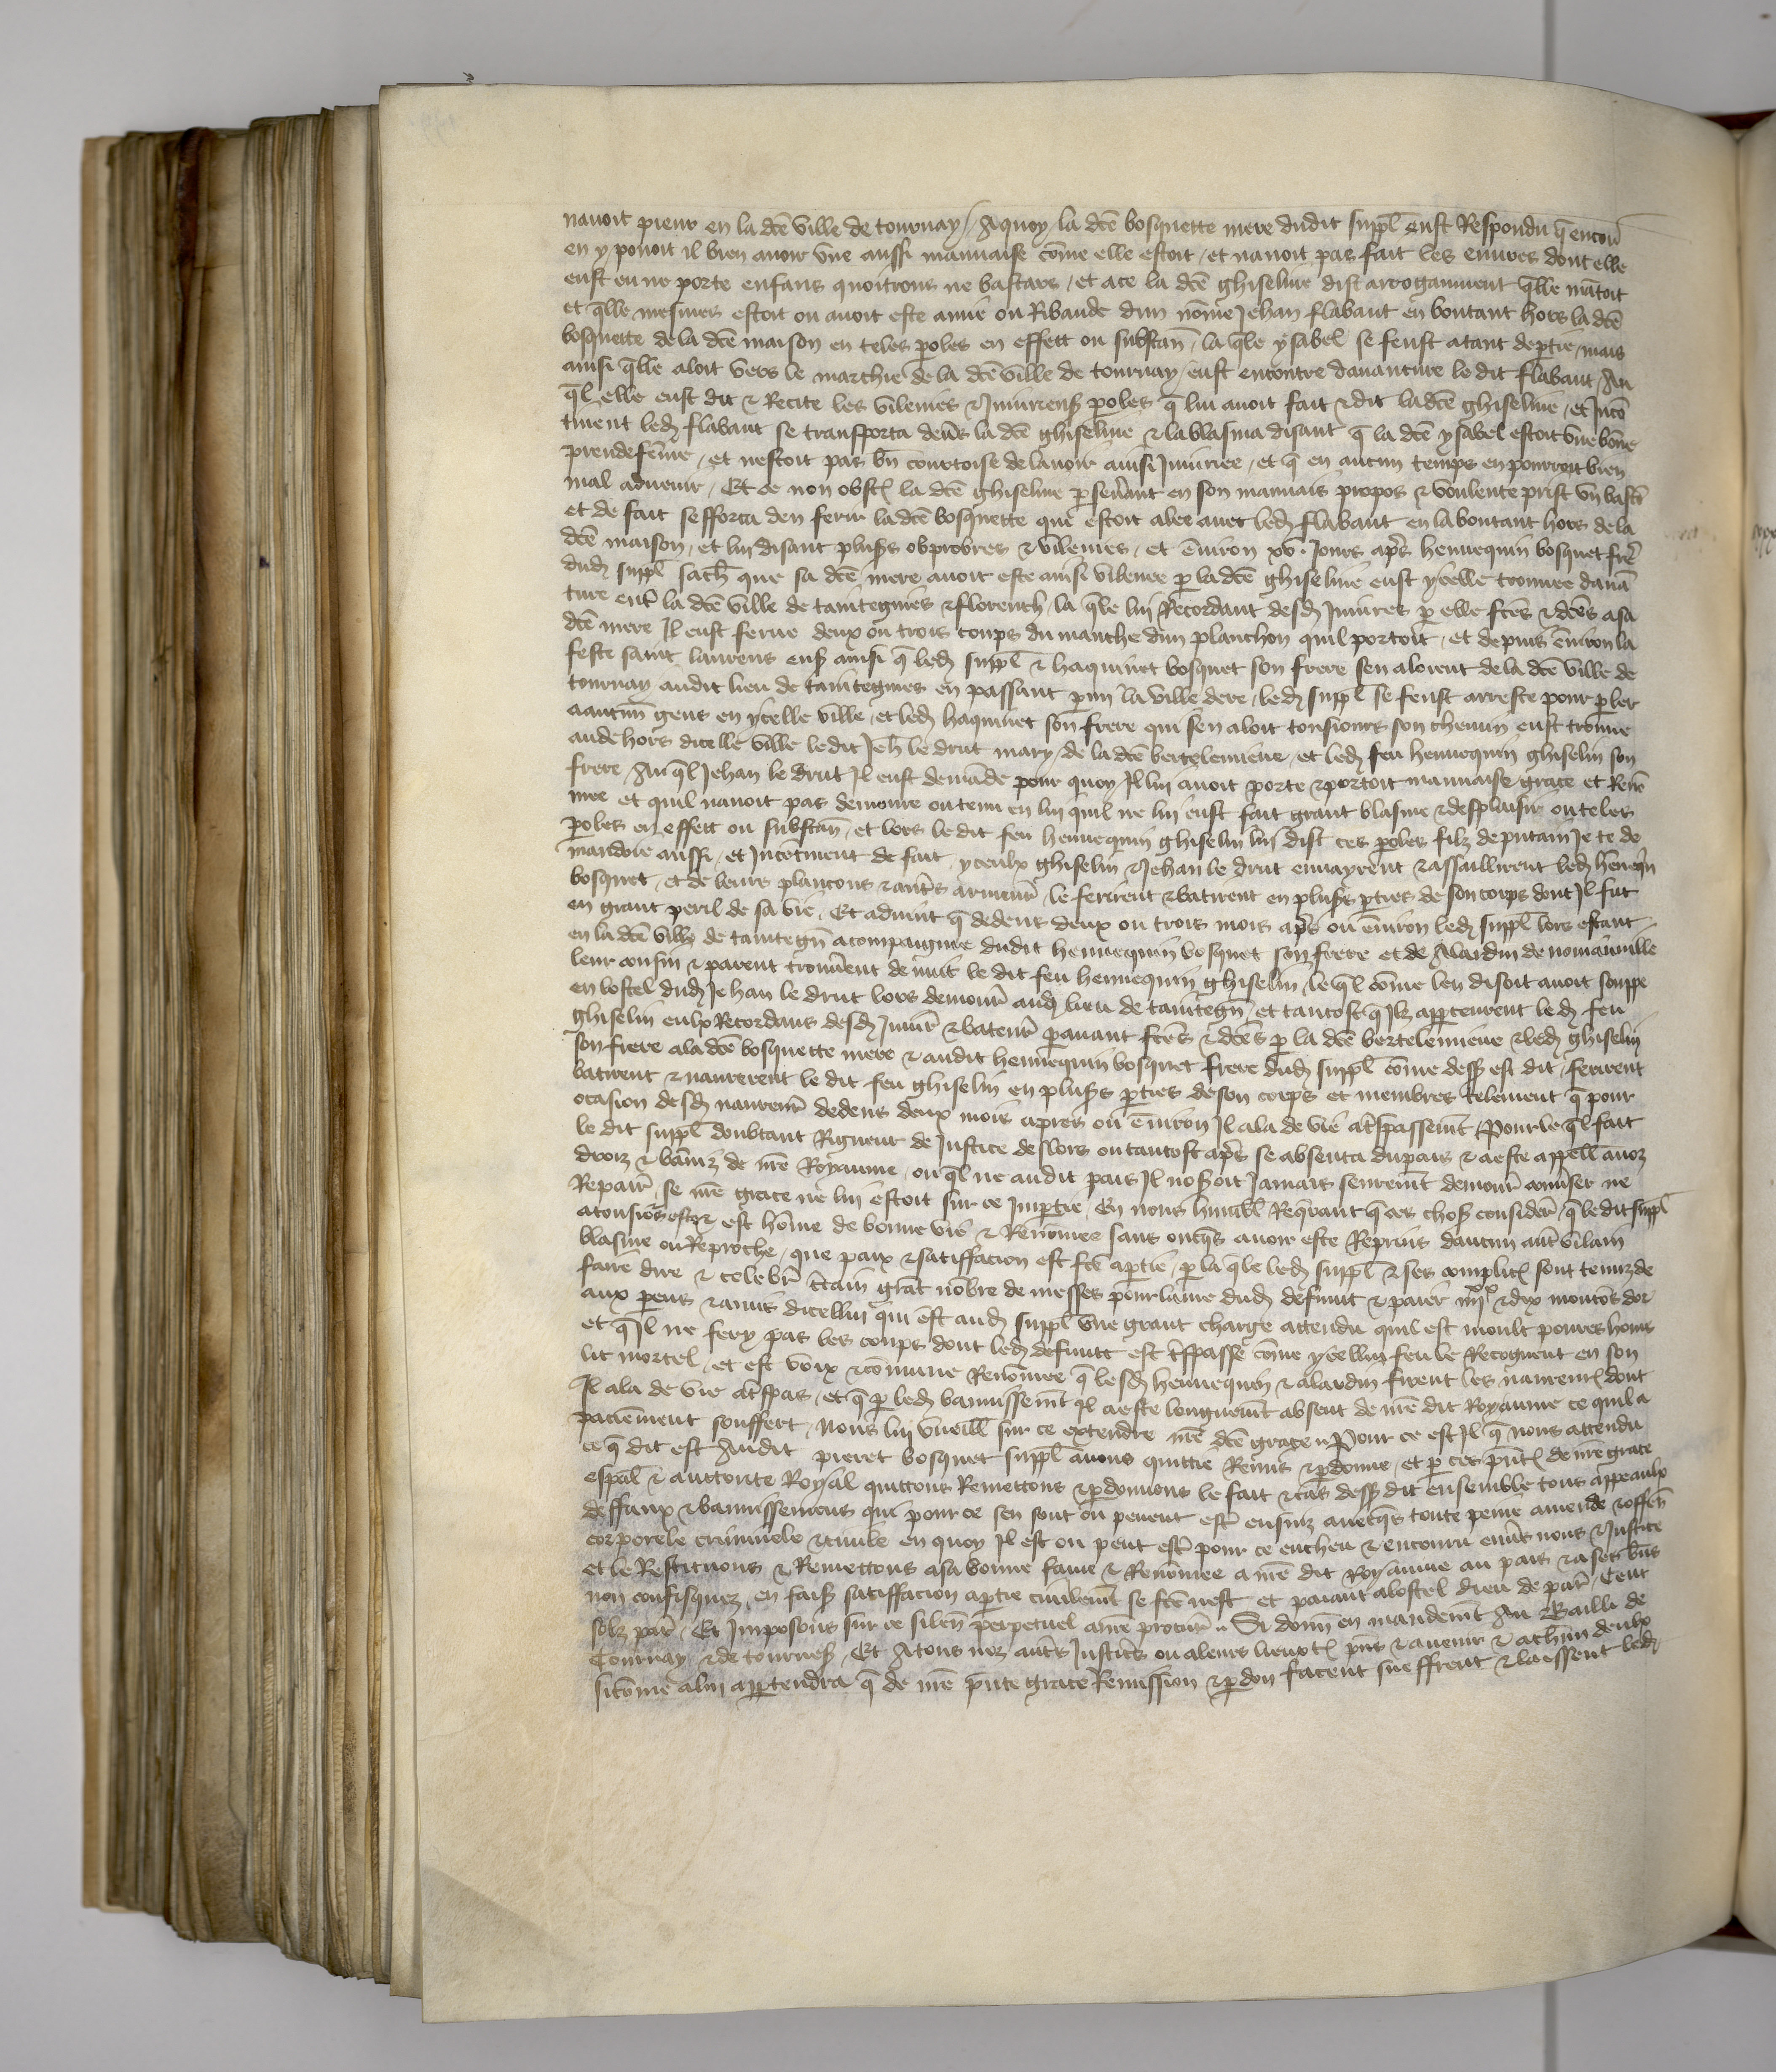 nauoit pieur en la dcē ville de tournay / Aquoy la dcē bosquette mere dudit suppl̄ eust Respondu q̄ encor̄
en y pouoit il bien auoir vne aussi mauuaise cōme elle estoit / et nauoit pas fait les euures dont elle
eust eu ne porte enfans quoitrons ne bastars / et ace la dcē ghiseline dist arroganment q̄lle mētoit
et q̄lle mesmes estoit ou auoit este amie ou Ribaude dun nōme Jehan flabaut en boutant hors la dcē
bosquette de la dcē maison en teles ꝑoles en effect ou substan̄ / la q̄le ysabel se feust atant deꝑtie / mais
ainsi q̄lle aloit vers le marchie de la dcē ville de tournay / eust encontre dauanture le dit flabaut / Au
q̄l elle eust dit & Recite les vilenies & Iniurieus̄ ꝑoles q̄ lui auoit fait & dit ladcē ghiseline / et Incō
tinent led̄ flabaut se transporta deūs la dcē ghiseline & la blasma disant q̄ la dcē ysabel estoit vne bōne
preudefēme / et nestoit pas bn̄ courtoise de lauoir ainsi Iniuriee / et q̄ en aucun temps en pourroit bien
mal aduenir / Et ce non obst̄ la dcē ghiseline ꝑseūant en son mauuais propos & voulente prist vn bastō
et de fait sefforca den ferir ladcē bosquette que estoit alee auec led̄ flabaut en la boutant hors de la
dcē maison / et lui disant pluss̄ obprobres & vilenies / et ēuiron xv. Iours ap̄s hennequin bosquet fr̄e
dud̄ suppl̄ sach̄ que sa dcē mere auoit este ainsi vilenee ꝑ la dcē ghiseline eust ycelle trouuee dauā
ture ent̄ la dcē ville de taintegnies & florench̄ / la q̄le lui Recordant desd̄ Iniures ꝑ elle fc̄es & dcēs asa
dcē mere Il eust ferue deux ou trois coups du manche dun planchon quil portoit / et depuis ēuiron la
feste saint laurens eus̄ ainsi q̄ led̄ suppl̄ & haquinet bosquet son frere sen aloient de la dcē ville de
tournay audit lieu de taintegnies en passant ꝑmi la ville dere / led̄ suppl̄ se feust arreste pour ꝑler
aaucūn gens en ycelle ville / et led̄ haquinet son frere qui sen aloit tousiours son chemin eust trouue
au dehors dicelle ville ledit Jeh̄ le drut mary de la dcē bertelemiene / et led̄ feu hennequin ghiselin son
frere / Au q̄l Jehan le drut Il eust demāde pour quoy Il lui auoit porte & portoit mauuaise grace et Renō
mee et quil nauoit pas demoure ou tenu en lui quil ne lui eust fait grant blasme & desplaisir ou teles
ꝑoles en effect ou substan̄ / et lors le dit feu hennequin ghiselin lui dist ces ꝑoles filz de putain Je te de
mandoie aussi / et Incōtinent de fait / yceulx ghiselin & Jehan le drut enuayrent & assaillirent led̄ hēneq̄n
bosquet / et de leurs plancons & aut̄s armeur̄ / le ferirent & batirent en pluss̄ ꝑties de son corps dont Il fut
en grant peril de sa vie / Et aduint q̄ dedens deux ou trois mois ap̄s ou ēuiron led̄ suppl̄ lors estant
en la dcē ville de taintegn̄ acompaignie dudit hennequin bosquet son frere et de Alardin de nomainuille
leur cousin & parent trouūent de nuit le dit feu hennequin ghiselin / le q̄l cōme len disoit auoit souppe
en lostel dud̄ Jehan le drut lors demour̄ aud̄ lieu de taintegn̄ / et tantost q̄ Ilz apꝑceurent led̄ feu
ghiselin eulx Recordans desd̄ Iniur̄ & bateur̄ ꝑauant fc̄es & dcēs ꝑ la dcē bertelemiene & led̄ ghiselin
son frere ala dcē bosquette mere & audit hennequin bosquet frere dud̄ suppl̄ cōme dess̄ est dit / ferirent
batirent & naurerent le dit feu ghiselin en pluss̄ ꝑties de son corps et membres telement q̄ pour
ocasion desd̄ naureur̄ dedens deux mois apres ou ēuiron Il ala de vie at̄spassemt̄ / Pour le q̄l fait
le dit suppl̄ doubtant Rigueur de Justice des lors ou tantost ap̄s se absenta du pais & a este appell̄ a noz
droiz & baniz de nr̄e Royaume / ou q̄l ne audit pais Il nos̄oit Iamais seuremt̄ demour̄ conūser ne
Repair̄ / se nr̄e grace ne lui estoit sur ce Imꝑtie / En nous humbl̄ Req̄rant q̄ ces chos̄ consider̄ / q̄ le dit suppl̄
atousiōs este & est hōme de bonne vie & Renōmee sans oncq̄s auoir este Reprins daucun aut̄ vilain
blasme ou Reproche / que paix & satiffacion est fcē aꝑtie / ꝑ la q̄le led̄ suppl̄ & ses complic̄ sont tenuz de
faire dire & celebr̄ c̄tain grāt nōbre de messes pour lame dud̄ defunct & paier iiiixx & dix moutōs dor
aux ꝑens & amis dicellui qui est aud̄ suppl̄ vne grant charge attendu quil est moult poures homs
et q̄ Il ne fery pas les coups dont led̄ defunct est t̄spasse cōme ycellui feu le Recognut en son
lit mortel / et est voix & cōmune Renōmee q̄ lesd̄ hennequin & alardin firent les naureur̄ dont
Il ala de vie at̄spas / et q̄ ꝑ led̄ bannissemt̄ Il a este longuemt̄ absent de nr̄e dit Royaume ce quil a
paciēment souffert / Nous lui vueill̄ sur ce extendre nr̄e dcē grace / Pour ce est Il q̄ nous attendu
ce q̄ dit est Audit pieret bosquet suppl̄ auons quittie Remis & ꝑdonne / et ꝑ ces p̄nt̄ de nr̄e grace
esp̄al & auctorite Royal quittons Remettons & ꝑdonnons le fait & cas dess̄ dit ensemble tous appeaulx
deffaux & bannissemens qui pour ce sen sont ou peuent est̄ ensuiz auecq̄s toute peine amende & offen̄
corporele criminele & ciuile en quoy Il est ou peut est̄ pour ce encheu & encouru enūs nous & Justice
et le Restituons & Remettons asa bonne fame & Renōmee a nr̄e dit Royaume au pais & a ses bn̄s
non confisquez / en fais̄ satiffacion aꝑtie ciuilemt̄ se fcē nest / et paiant alostel dieu de par̄ / Cent
solz par̄ / Et Imposons sur ce silen̄ perpetuel anr̄e procur̄ .. Si donn̄ en mandemt̄ Au Bailli de
Tournay & de tournes̄ / Et Atous noz aut̄s Justic̄s ou aleurs lieuxt̄ p̄ns & auenir & achūn deulx
sicōme alui apꝑtendra q̄ de nr̄e p̄nte grace Remission & ꝑdon facent sueffrent & laissent led̄